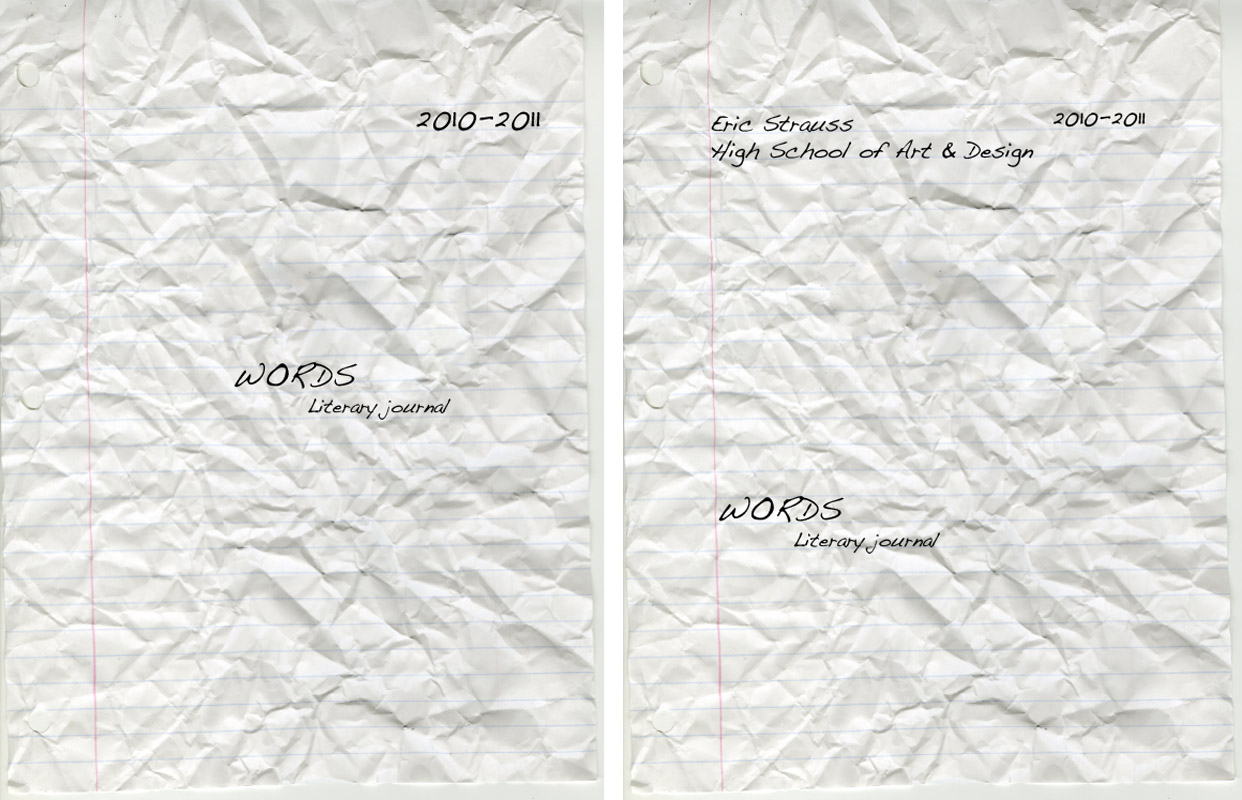 2010-2011
WORDS
Literary journal
Eric Strauss
2010-2011
High School of Art & Design
WORDS
Literary journal